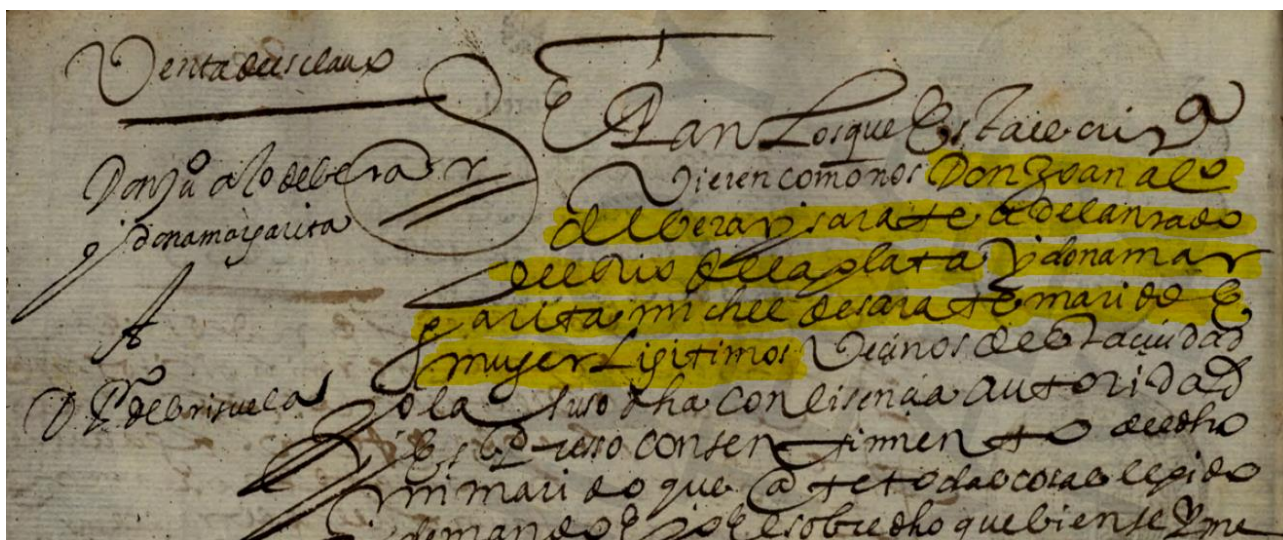 Venta de esclavo
Don Ju° alo de bera
y dona margarita
A
D. P° de brisuela
Sepan los que esta escriᵃ
Vieren como nos Don Zoan alo
de bera y sarate adelantado
del Rio de la plata y dona mar
garita michel de sarate marido E
muger Ligitimos Vecinos de esta ciudad
yo la suso dha con lisencia autoridad
y Espreso consentimiento del dho
mi marido que Ante todas cosas le pido
E demando E yo El sobredho que bien se y me